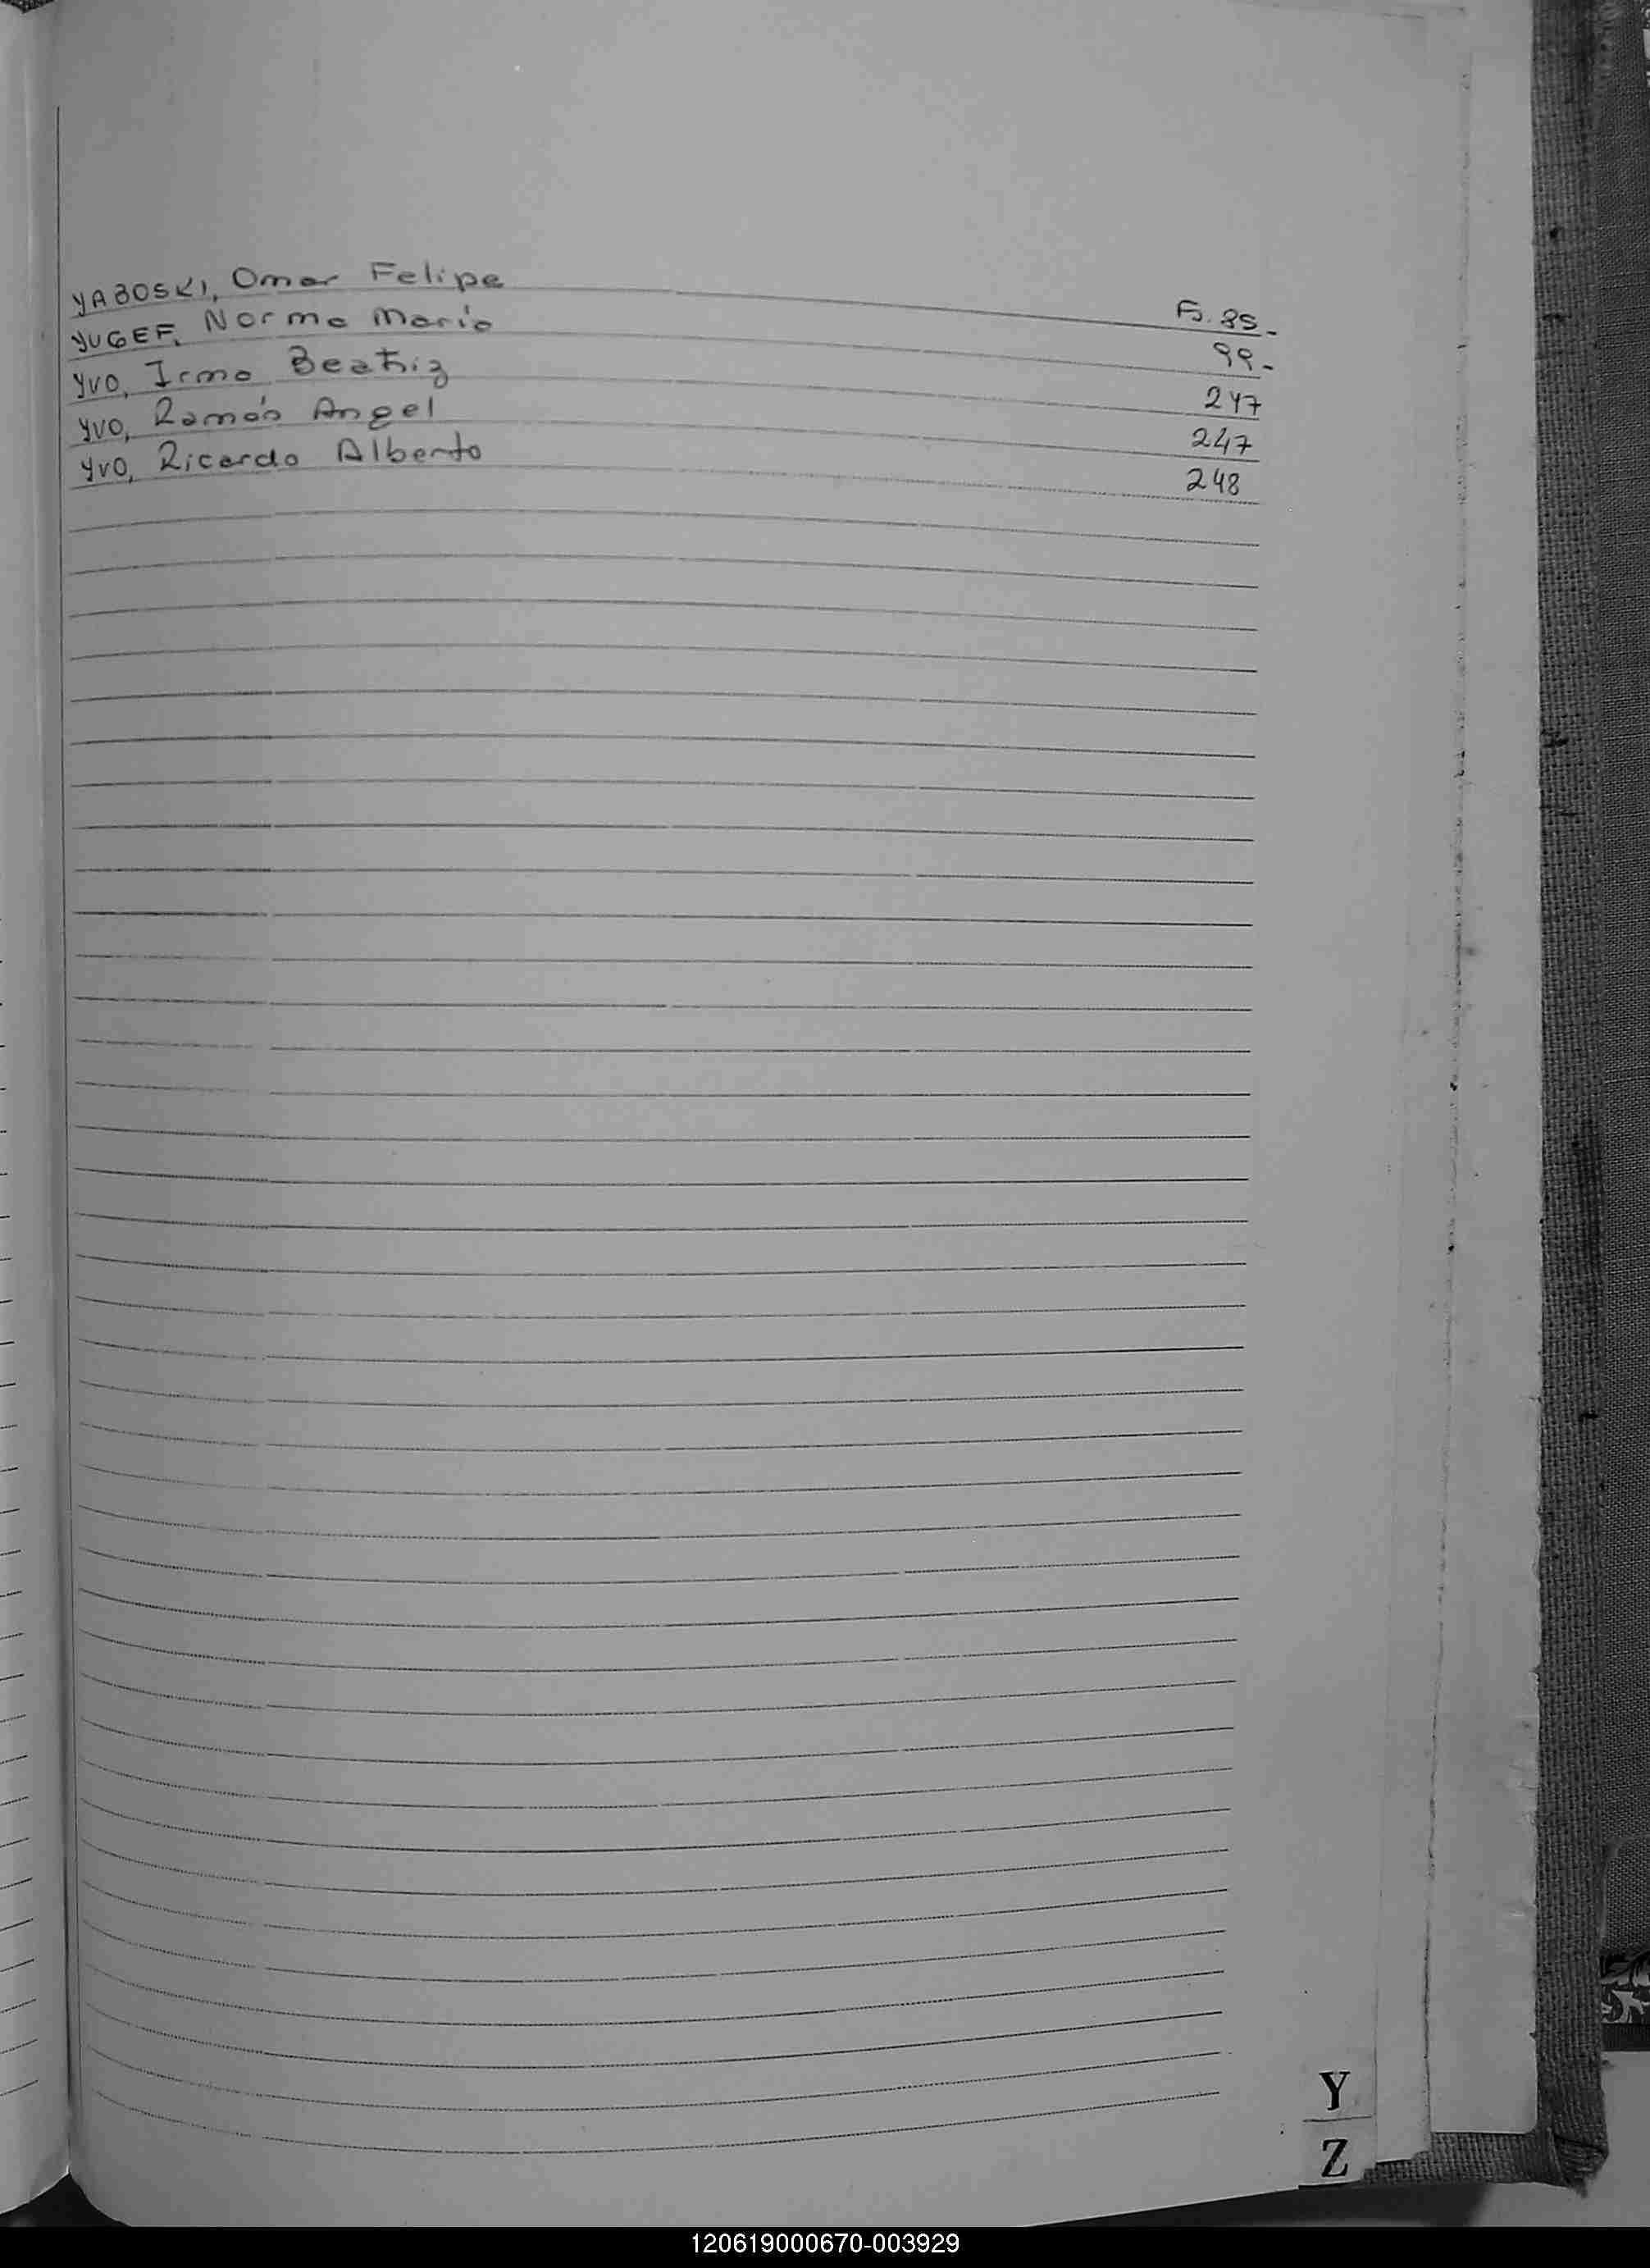 YABOSKI, Omar Felipe Fs. 85-
YUGEF, Norma Maria 99-
YVO, Irma Beatriz 247
YVO, Ramón Angel 247
YVO, Ricardo Alberto 248
Y
Z
120619000670-003929